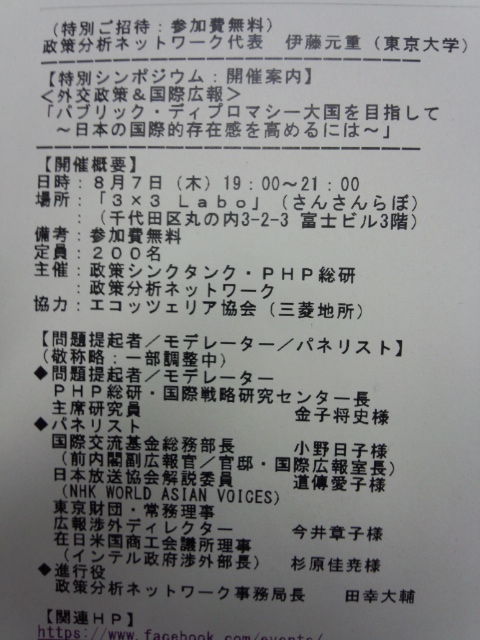 (特別ご招待:参加費無料)
政策分析ネットワーク代表 伊藤元重(東京大学)
【特別シンポジウム:開催案内】
<外交政策&国際広報>
「パブリック・ディプロマシー大国を目指して
~日本の国際的存在感を高めるには~」
【開催概要】
日時:8月7日(木)19:00~21:00
場所:「3×3 Labo」(さんさんらぼ)
:(千代田区丸の内3-2-3 富士ビル3階)
備考:参加費無料
定員:200名
主催:政策シンクタンク・PHP総研
:政策分析ネットワーク
協力:エコッツェリア協会(三菱地所)
【問題提起者/モデレーター/パネリスト】
(敬称略:一部調整中)
◆問題提起者/モデレーター
PHP総研・国際戦略研究センター長
主席研究員 金子将史様
◆パネリスト
国際交流基金総務部長 小野日子様
(前内閣副広報官/官邸・国際広報室長)
日本放送協会解説委員 道傳愛子様
(NHK WORLD ASIAN VOICES)
東京財団・常務理事
広報渉外ディレクター 今井章子様
在日米国商工会議所理事
(インテル政府渉外部長) 杉原佳尭様
◆進行役
政策分析ネットワーク事務局長 田幸大輔
【関連HP】
https://www.facebook.com/events/